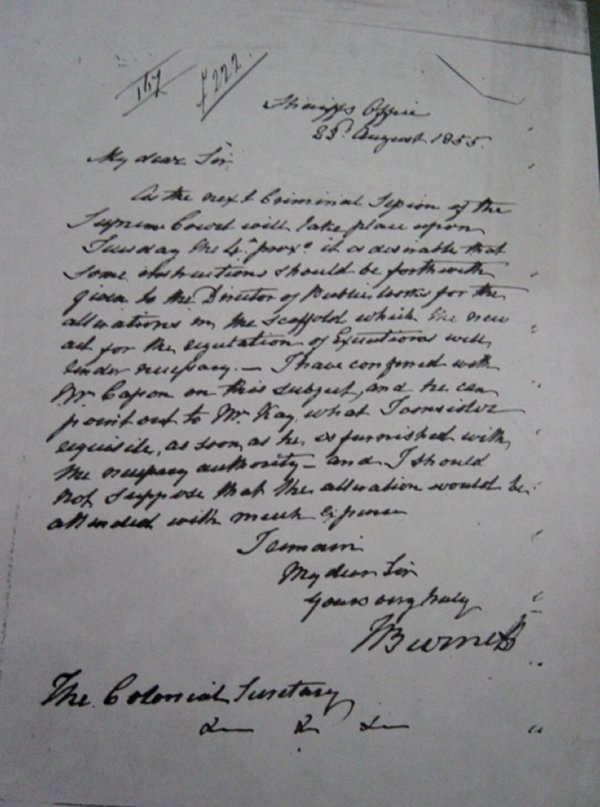 167 £222
Sheriffs Office
25th August 1855
My dear Sir
As the next Criminal Session of the
Supreme Court will take place upon
Tuesday the 4th proxo it is desirable that
some instructions should be forthwith
given to the Director of Public Works for the
alterations in the scaffold which the new
act for the regulation of Executions will
render necessary. — I have conferred with
Mr Capon on this subject, and he can
point out to Mr Kay, what I consider
requisite, as soon as he is furnished with
the necessary authority — and I should
not suppose that the alteration would be
attended with much expense
I remain
My dear Sir
Yours very truly
J Burnett
The Colonial Secretary